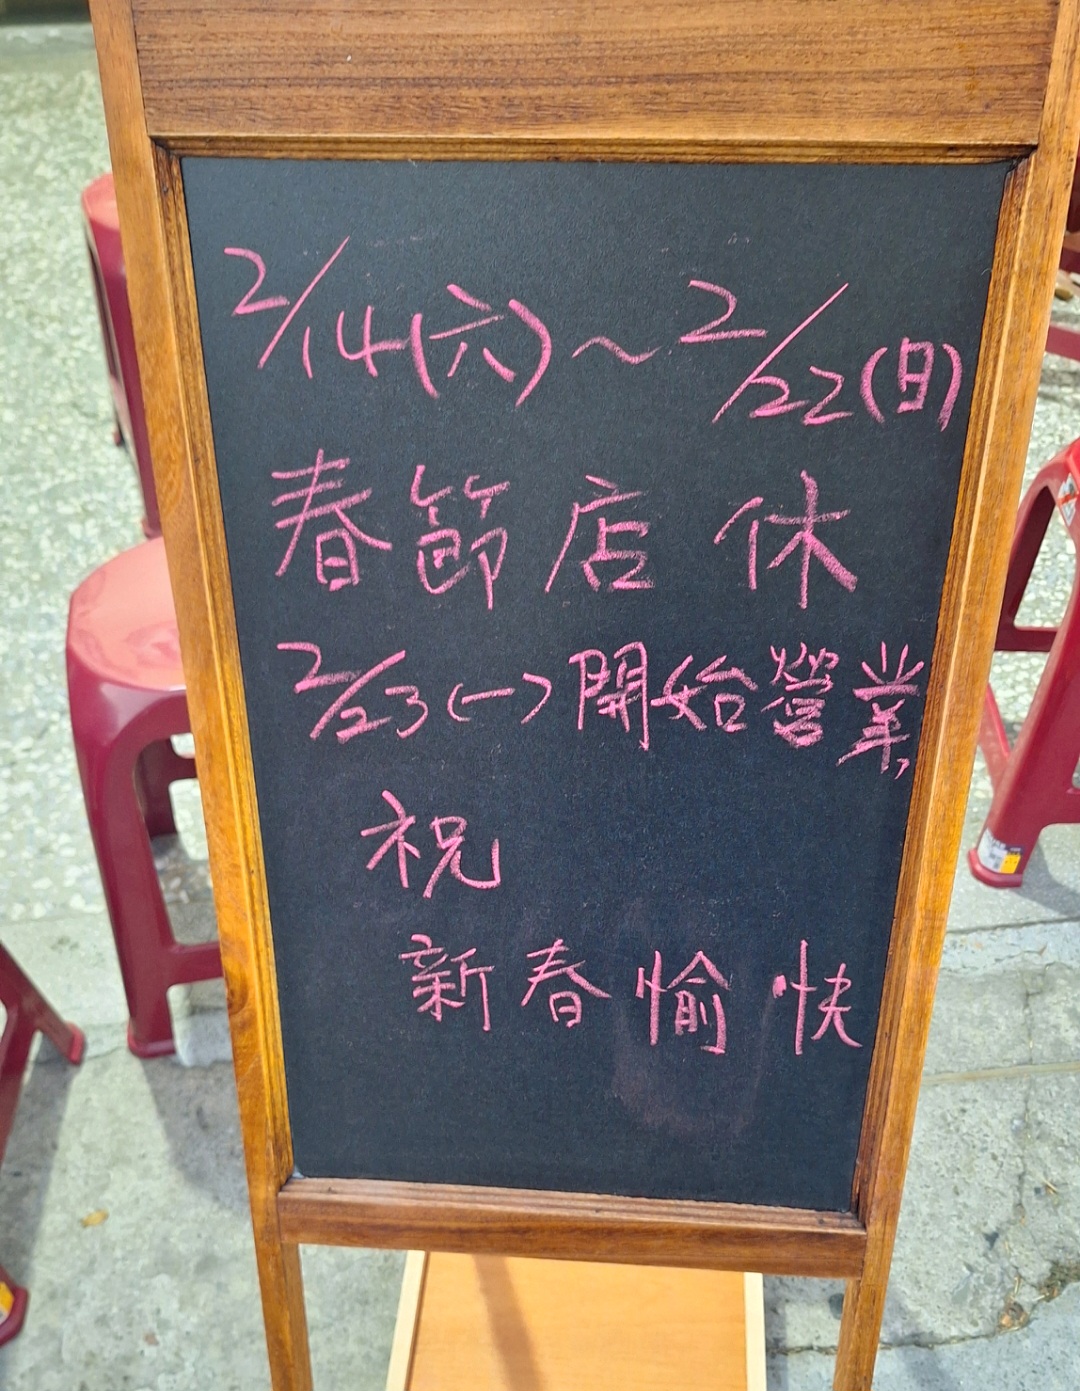 2/14(六)~2/22(日)
春節店休
2/23(一)開始營業,
祝
新春愉快